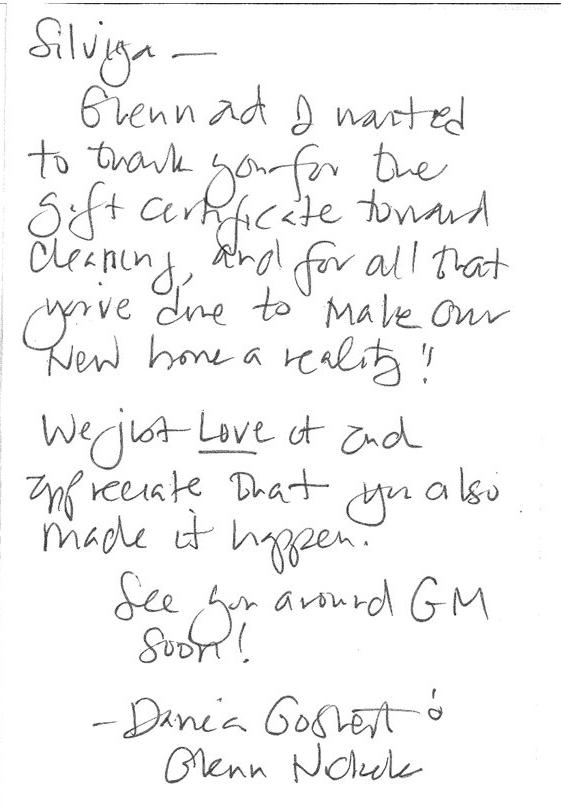 Silviya —
Glenn and I wanted
to thank you for the
gift certificate toward
cleaning, and for all that
you've done to make our
new home a reality!!
We just Love it and
appreciate that you also
made it happen.
See you around GM
soon!
Glenn